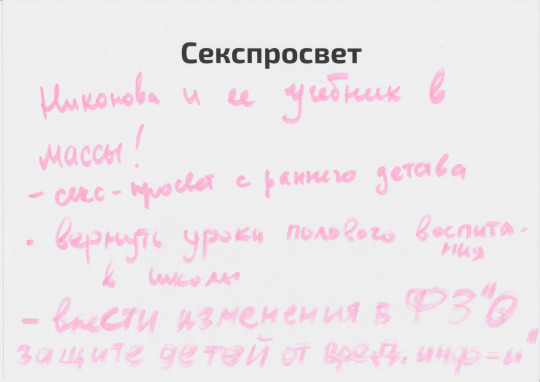 Секспросвет
Никонова и ее учебник в
массы!
- секс-просвет с раннего детства
• вернуть уроки полового воспита-
ния
в школы
- внести изменения в ФЗ "О
защите детей от вред. инф-и"